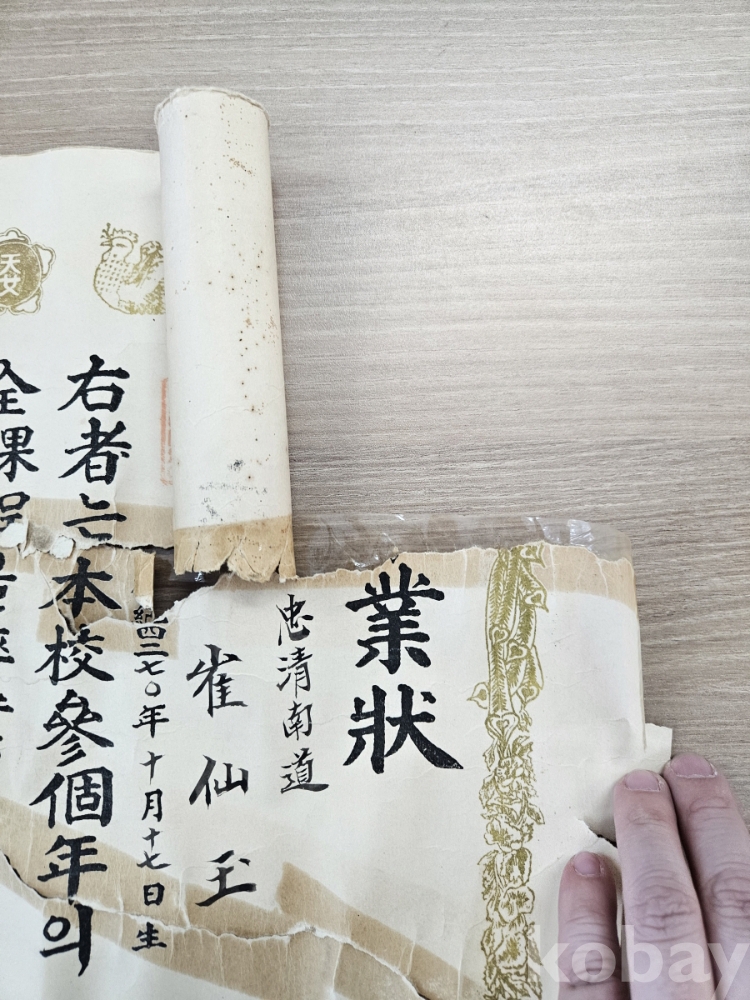 業狀
忠清南道
崔仙玉
紀四二七〇年十月十七日生
右者는本校參個年의
全課
天女
kobay